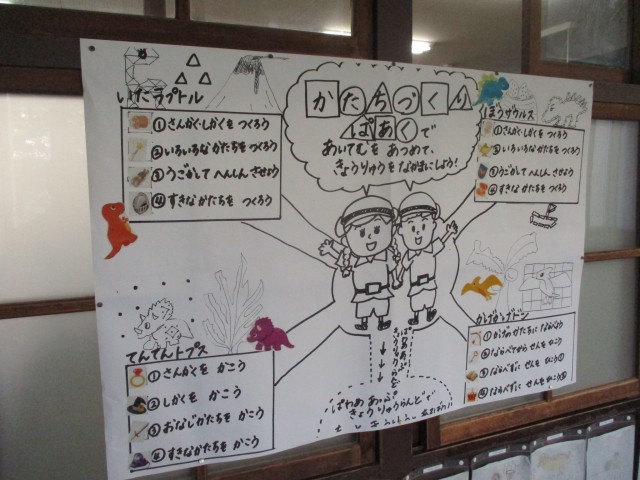 かたちづくり
ぱあくで
あいてむを あつめて、
きょうりゅうを なかまにしよう！
いたラプトル
①さんかく・しかくを つくろう
②いろいろな かたちを つくろう
③うごかして へんしん させよう
④すきな かたちを つくろう
ぼうザウルス
①さんかく・しかくを つくろう
②いろいろな かたちを つくろう
③うごかして へんしん させよう
④すきな かたちを つくろう
てんてんトプス
①さんかくを かこう
②しかくを かこう
③おなじかたちを かこう
④すきなかたちを かこう
かげかげドン
②ならべてから せんを かこう
③ならべずに せんを かこう①
④ならべずに せんを かこう②
ぱわああっぷ
きょうりゅうらんどで